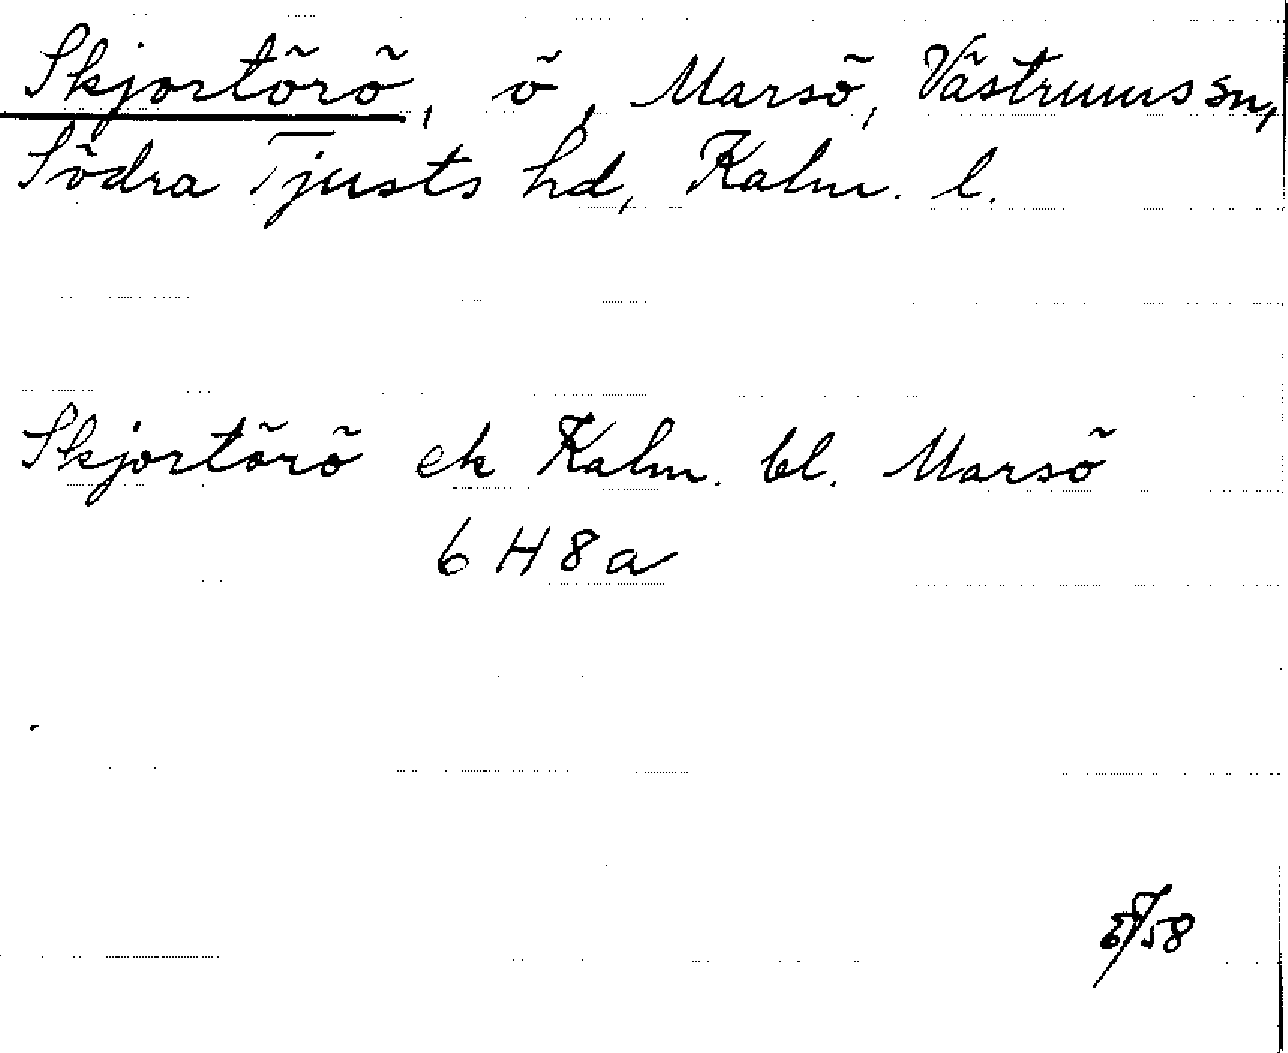 Skjortörö, ö, Marsö, Västrums sn,
Södra Tjusts hd, Kalm. l.
Skjortörö ek Kalm. bl. Marsö
6 H 8 a